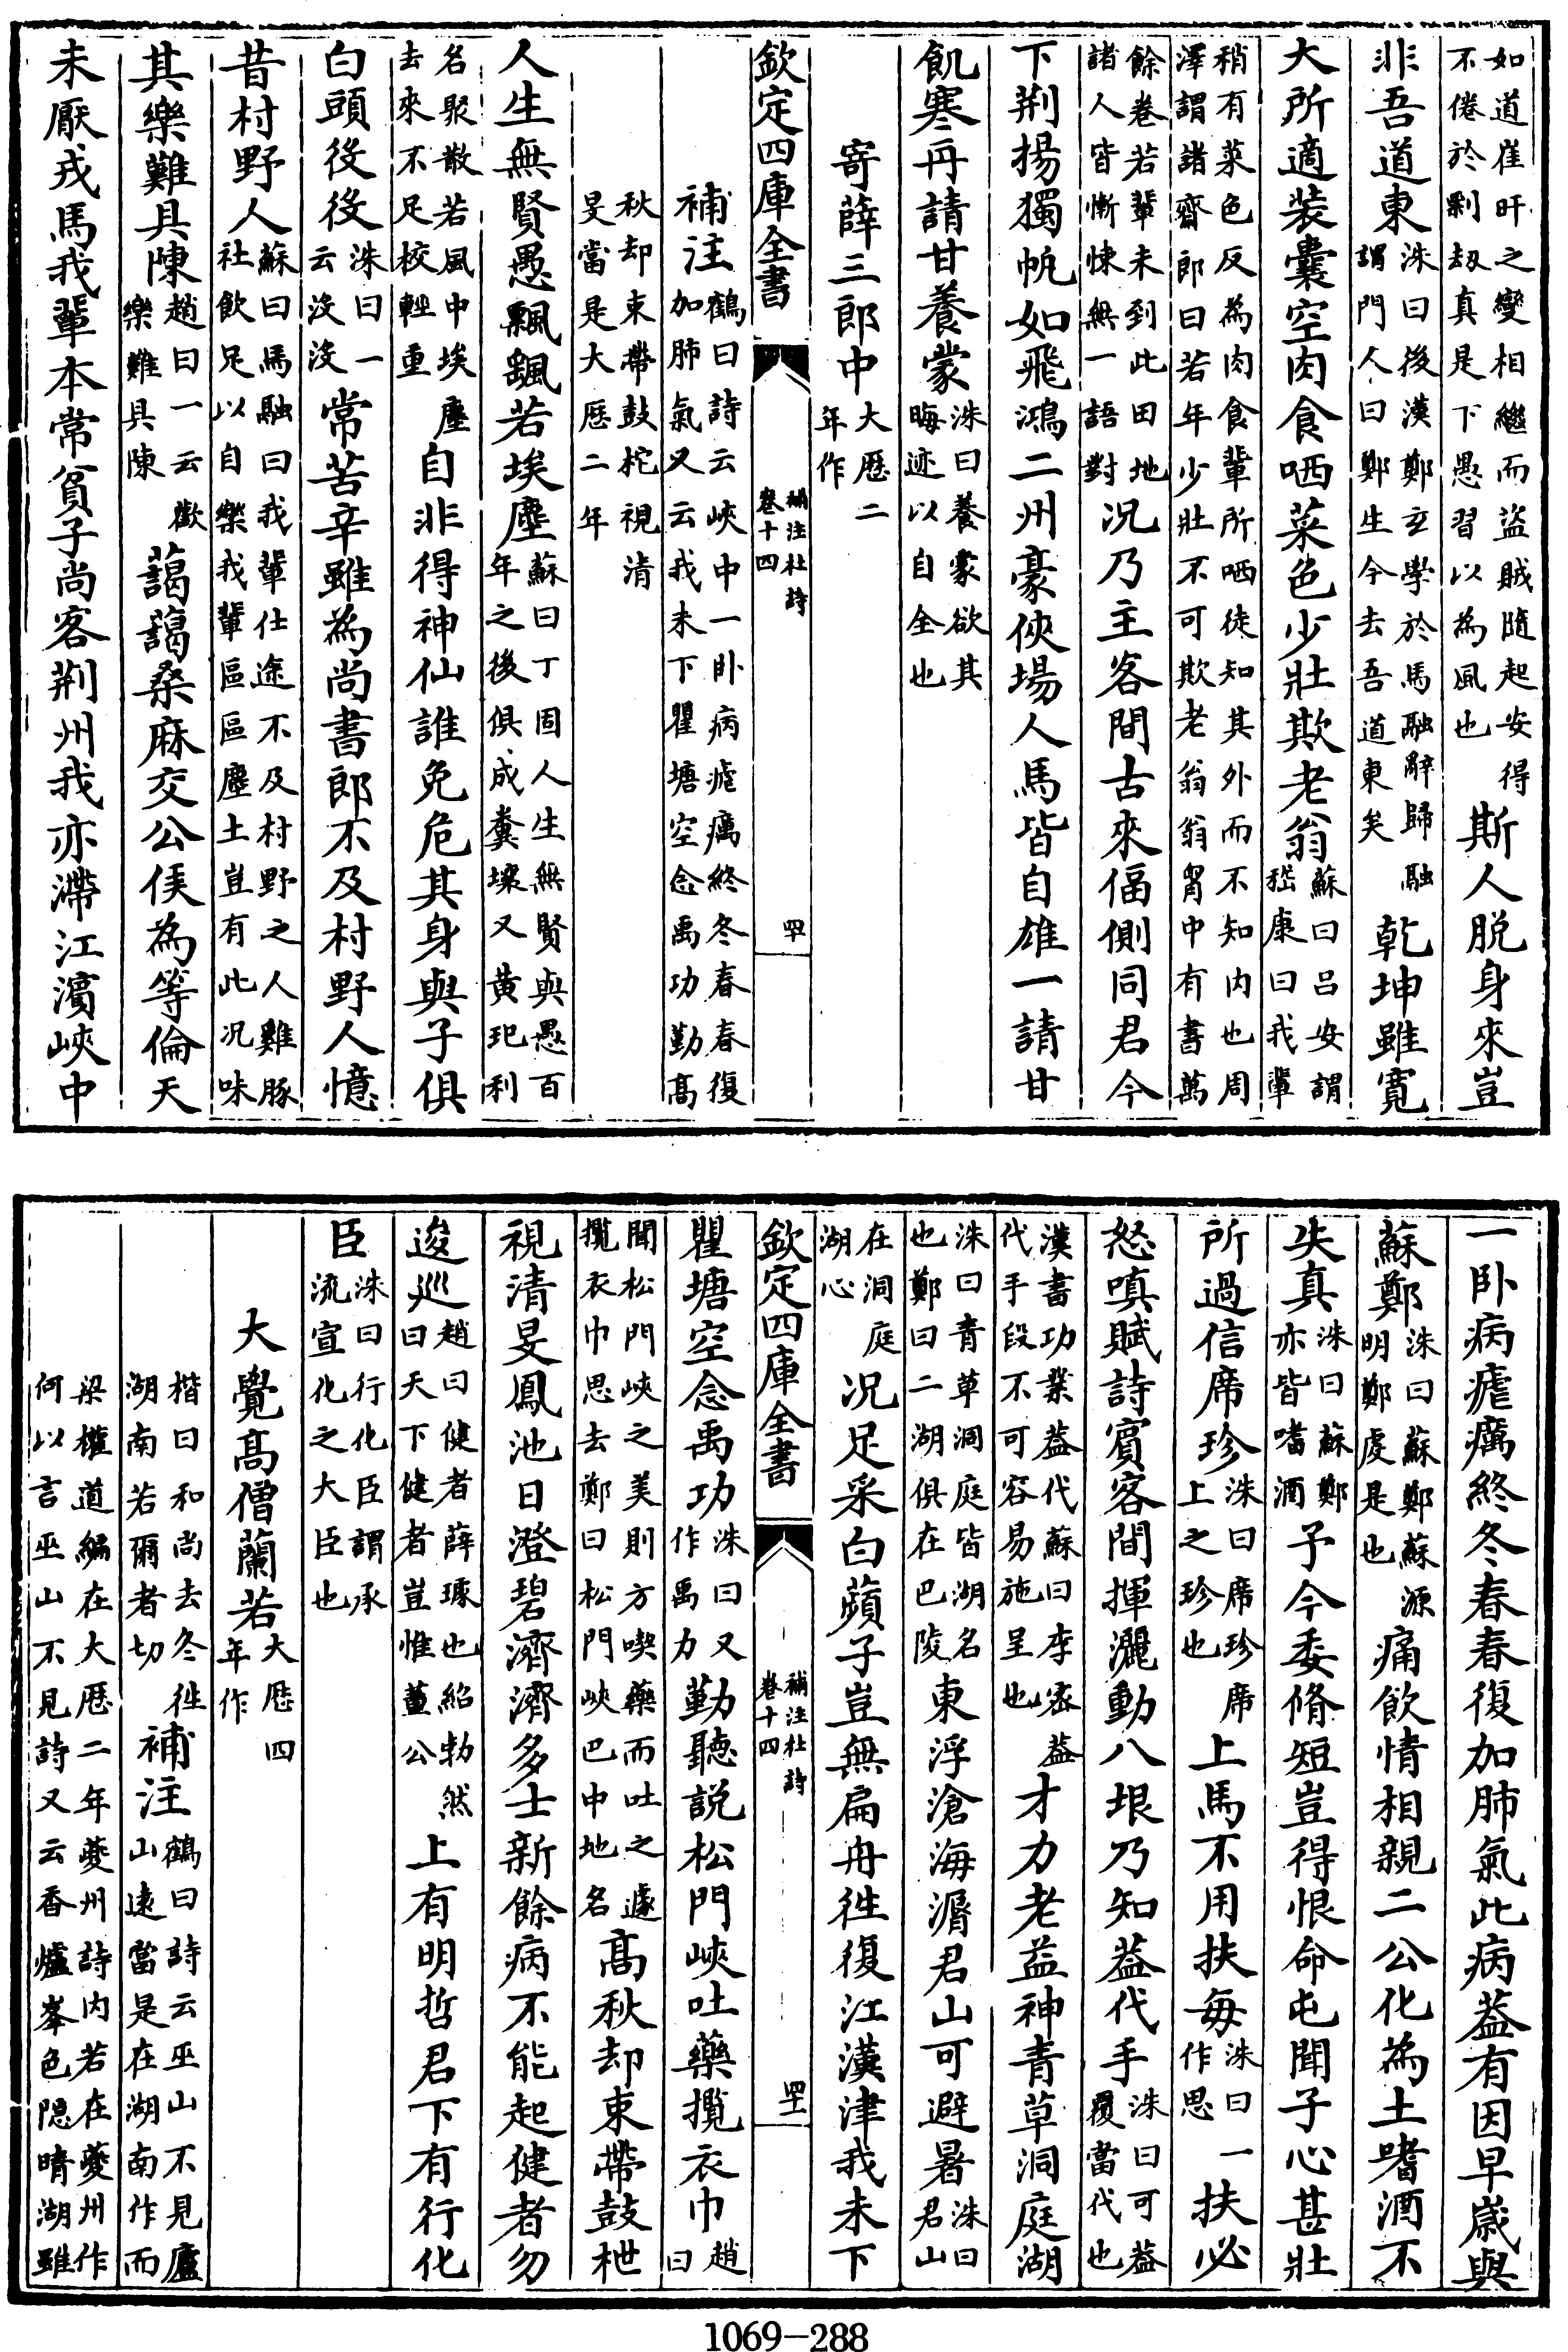 如道崔旰之變相繼而盜賊隨起安得不倦於剽刼真是下愚習以為風也斯人脫身來豈
非吾道東洙曰後漢鄭玄學於馬融辭歸融謂門人曰鄭生今去吾道東矣乾坤雖寛
大所適装囊空肉食哂菜色少壯欺老翁蘇曰吕安謂嵇康曰我輩
稍有菜色反為肉食輩所哂徒知其外而不知内也周澤謂諸齋郎曰若年少壯不可欺老翁翁胷中有書萬
餘卷若輩未到此田地諸人皆慚悚無一語對况乃主客間古來偪側同君今
下荆揚獨帆如飛鴻二州豪俠場人馬皆自雄一請甘
飢寒再請甘養蒙洙曰養蒙欲其晦迹以自全也
寄薛三郎中大厯二年作
欽定四庫全書 補注杜詩卷十四 四十
補注鶴曰詩云峽中一卧病瘧癘終冬春春復加肺氣又云我未下瞿塘空念禹功勤髙
秋却束帶鼓柁視清旻當是大厯二年
人生無賢愚飄颻若埃塵蘇曰丁固人生無賢與愚百年之後俱成糞壤又黄玘利
名聚散若風中埃塵去來不足校輕重自非得神仙誰免危其身與子俱
白頭役役洙曰一云没没常苦辛雖為尚書郎不及村野人憶
昔村野人蘇曰馬融曰我輩仕途不及村野之人雞豚社飲足以自樂我輩區區塵土豈有此况味
其樂難具陳趙曰一云歡樂難具陳藹藹桑麻交公侯為等倫天
未厭戎馬我輩本常貧子尚客荆州我亦滯江濱峽中
一卧病瘧癘終冬春春復加肺氣此病葢有因早歲與
蘇鄭洙曰蘇鄭蘇源明鄭虔是也痛飲情相親二公化為土嗜酒不
失真洙曰蘇鄭亦皆嗜酒予今委脩短豈得恨命屯聞子心甚壯
所過信席珍洙曰席珍席上之珍也上馬不用扶每洙曰一作思扶必
怒嗔賦詩賓客間揮灑動八垠乃知葢代手洙曰可葢覆當代也
漢書功業葢代蘇曰李宻葢代手段不可容易施呈也才力老益神青草洞庭湖
洙曰青草洞庭皆湖名也鄭曰二湖俱在巴陵東浮滄海漘君山可避暑洙曰君山
在洞庭湖心况足采白蘋子豈無扁舟徃復江漢津我未下
欽定四庫全書 補注杜詩卷十四 四十一
瞿塘空念禹功洙曰又作禹力勤聽説松門峽吐藥攬衣巾趙曰
聞松門峽之美則方喫藥而吐之遽攬衣巾思去鄭曰松門峽巴中地名髙秋却束帶鼓枻
視清旻鳳池日澄碧濟濟多士新餘病不能起健者勿
逡巡趙曰健者薛琢也紹勃然曰天下健者豈惟董公上有明哲君下有行化
臣洙曰行化臣謂承流宣化之大臣也
大覺髙僧蘭若大厯四年作
楷曰和尚去冬徃湖南若爾者切補注鶴曰詩云巫山不見廬山遠當是在湖南作而
梁權道編在大厯二年夔州詩内若在夔州作何以言巫山不見詩又云香爐峯色隠晴湖雖
1069-288